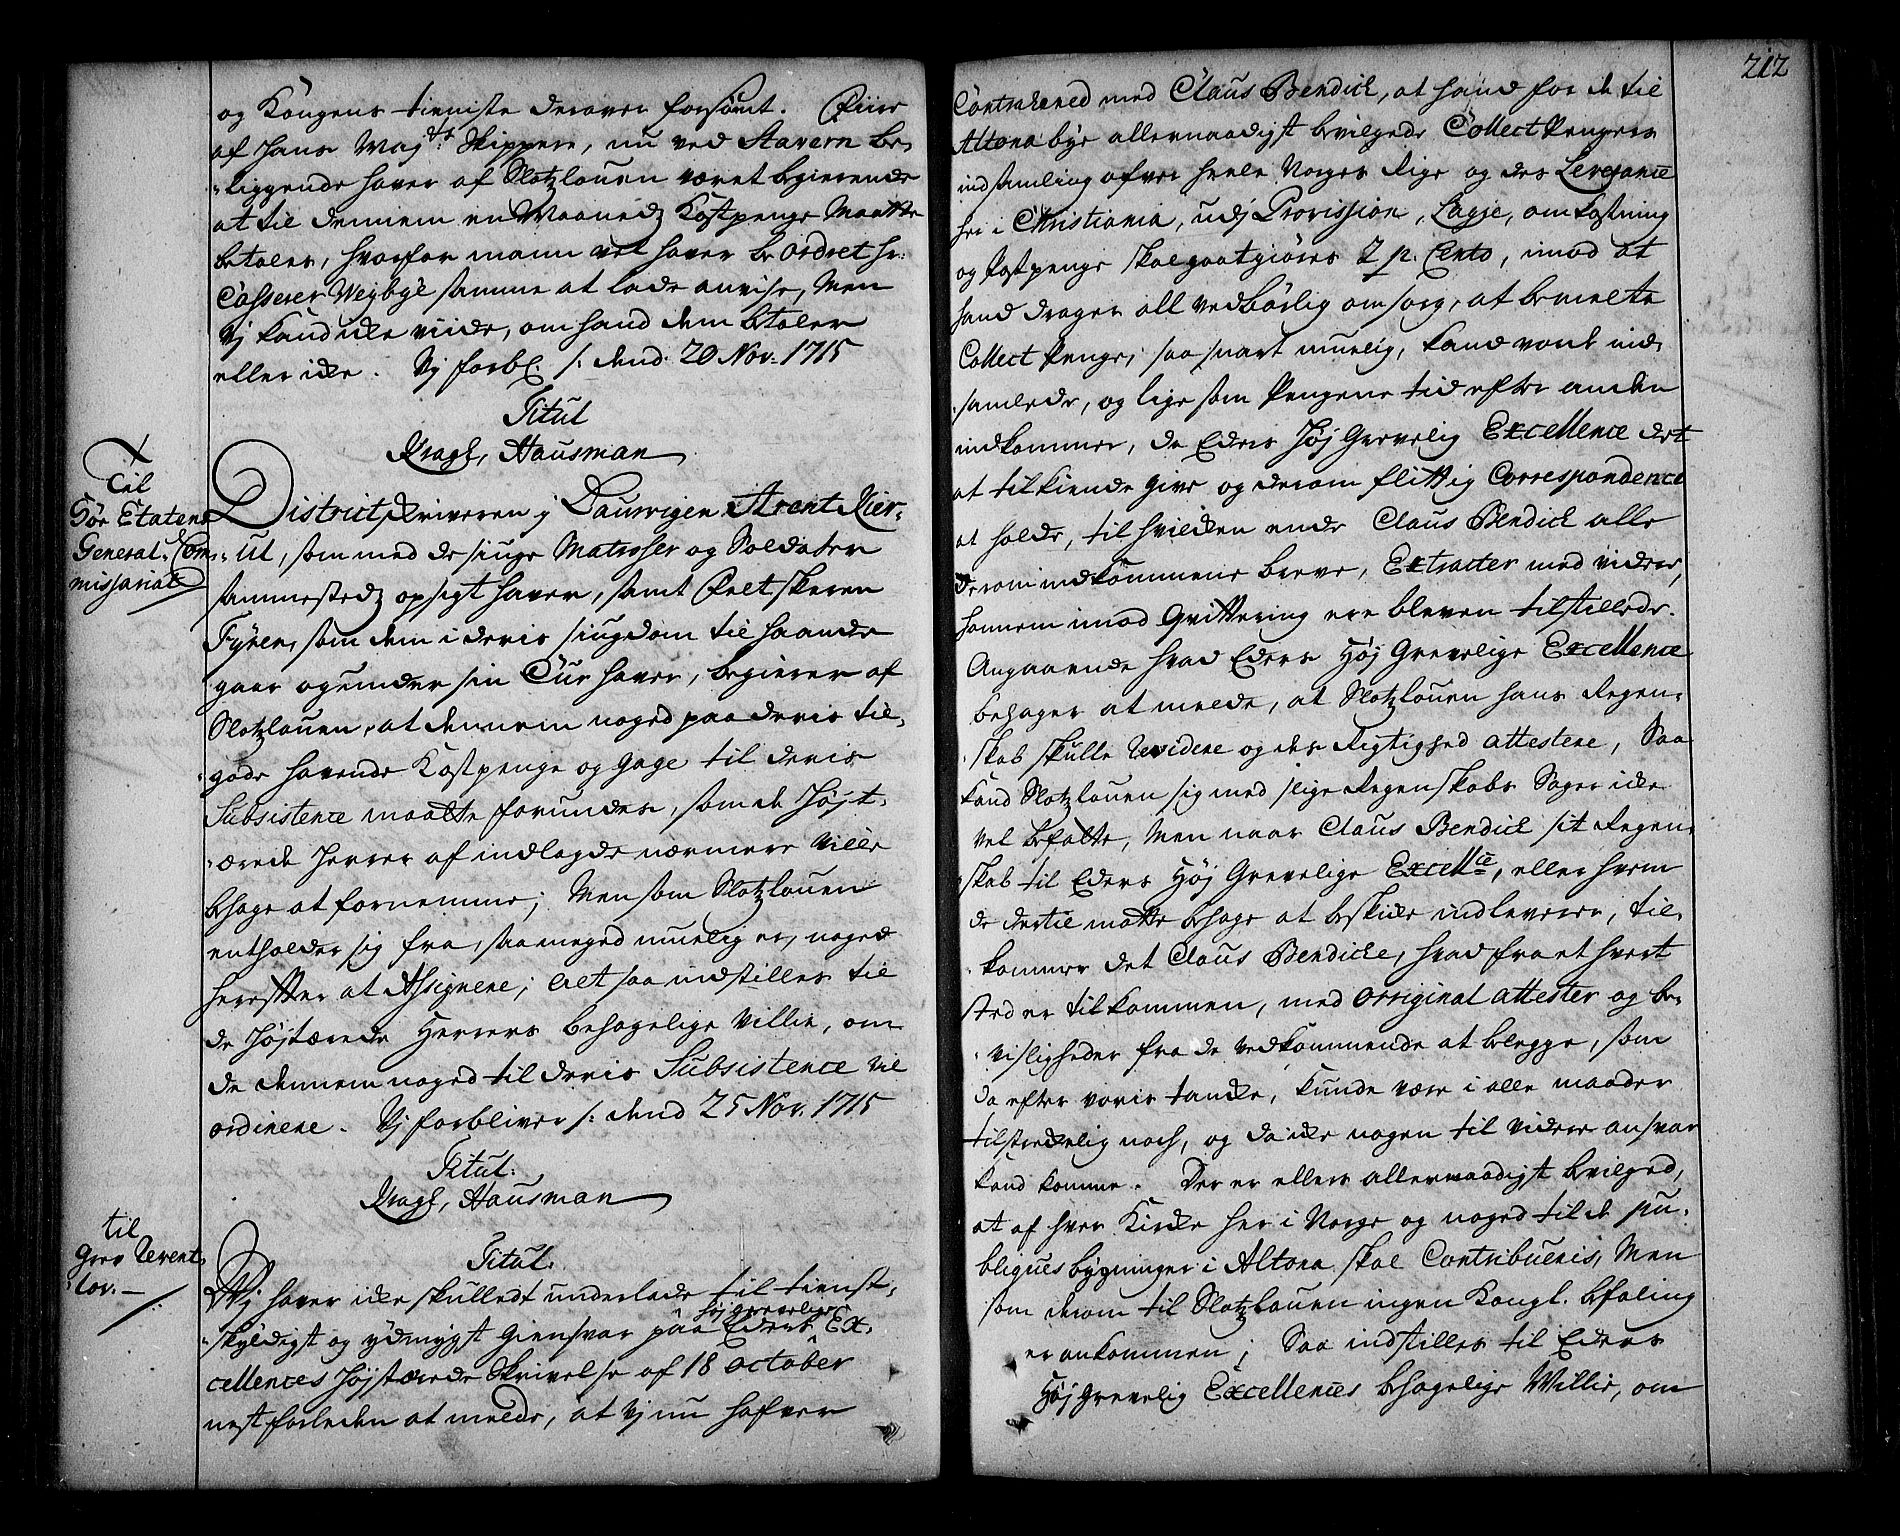 og Kongens tieniste derover forsømt. Fiire
af Hans Maj:ts Skippere, nu ved Stavern be-
liggende haver af Slotzlouen været begierende
at til dennem en Maaneds Kostpenge Maatte
betales, hvorfor mann vel haver beordret hr:
Casserer Weybye samme at lade anvise, Men
Vj kand icke viide, om hand dem betaler
eller icke. Vj forbl. /: dend. 20 Nov: 1715
Titul
Kragh, Hausman
Til
Söe Etatens
General Com-
missariat
Districtskriveren j Laurvigen Arent Kier-
ulf, som med de siuge Matroser og Soldater
sammesteds opsigt haver, samt Feltskeren
Fyren, som dem i deris siugdom til haande
gaar og under sin Cur haver, begierer af
Slotzlouen, at dennem noged paa deris til-
gode havende Kostpenge og gage til deris
Subsistence maatte forundes, som de Højst-
ærede Herrer af indlagde nærmere ville
behage at fornemme; Men som Slotzlouen
entholder sig fra, saa meged muelig er, noged
herefter at Assignere; Alt saa indstilles til
de Højstærede Herrers behagelige Villie, om
de dennem noged til deris Subsistence vil
ordinere. Vj forbliver /: dend 25 Nov. 1715
Titul:
Kragh, Hausman
til
Grev Revent-
lov.
Titul.
Vj haver icke skulledt underlade til tienst-
skyldigst og ydmygst Giensvar paa Eders høj grevelige Ex-
cellences Højstærede Skrivelse af 18 October
nestforleden at melde, at Vj nu hafver
212
Contrahered med Claus Bendick, at hand for de til
Altona bye allernaadigst bevilgede Collect Penges
indsamling ofver heele Norges Rige og des Leverance
her i Christiania, udj Provission, Lagie, omkostning
og Postpenge skal godtgiøres 2 p. Cento, imod at
hand drager all vedbørlig omsorg, at bemelte
Collect Penge, saa snart muelig, kand vorde ind-
samlede, og lige som Pengene tid efter anden
indkommer, da Eders Høj Grevelig Excellence det
at tilkiende give og derom flittig Correspondence
at holde, til hvilcken ende Claus Bendick alle
derom indkommene breve, Extracter med videre,
hannem imod Qvittering ere bleven tilstillede.
Angaaende hvad Eders Høj Grevelige Excellence
behager at melde, at Slotzlouen hans Regen-
skab skulle Revidere og des Rigtighed attestere, Saa
kand Slotzlouen sig med slige Regenskabs Sager icke
vel befatte, Men naar Claus Bendick sit Regen-
skab til Eders Høj Grevelige Excell:ce, eller hvem
de dertil matte behage at beskicke indleverer, til-
kommer det Claus Bendicke, hvad fra et hvert
sted er tilkommen, med original attester og be-
visligheder fra de vedkommende at belegge, som
da efter voris tancke, kunde være i alle maader
tilstreckelig noch, og da icke nogen til videre ansvar
kand komme. Der er ellers allernaadigst bevilged,
at af hver Kircke her i Norge og noged til de pu-
bliques bygninger i Altona skal Contribueris, Men
som derom til Slotzlouen ingen Kongl. befaling
er ankommen; Saa indstilles til Eders
Høj Grevelig Excellences behagelige Willie, om